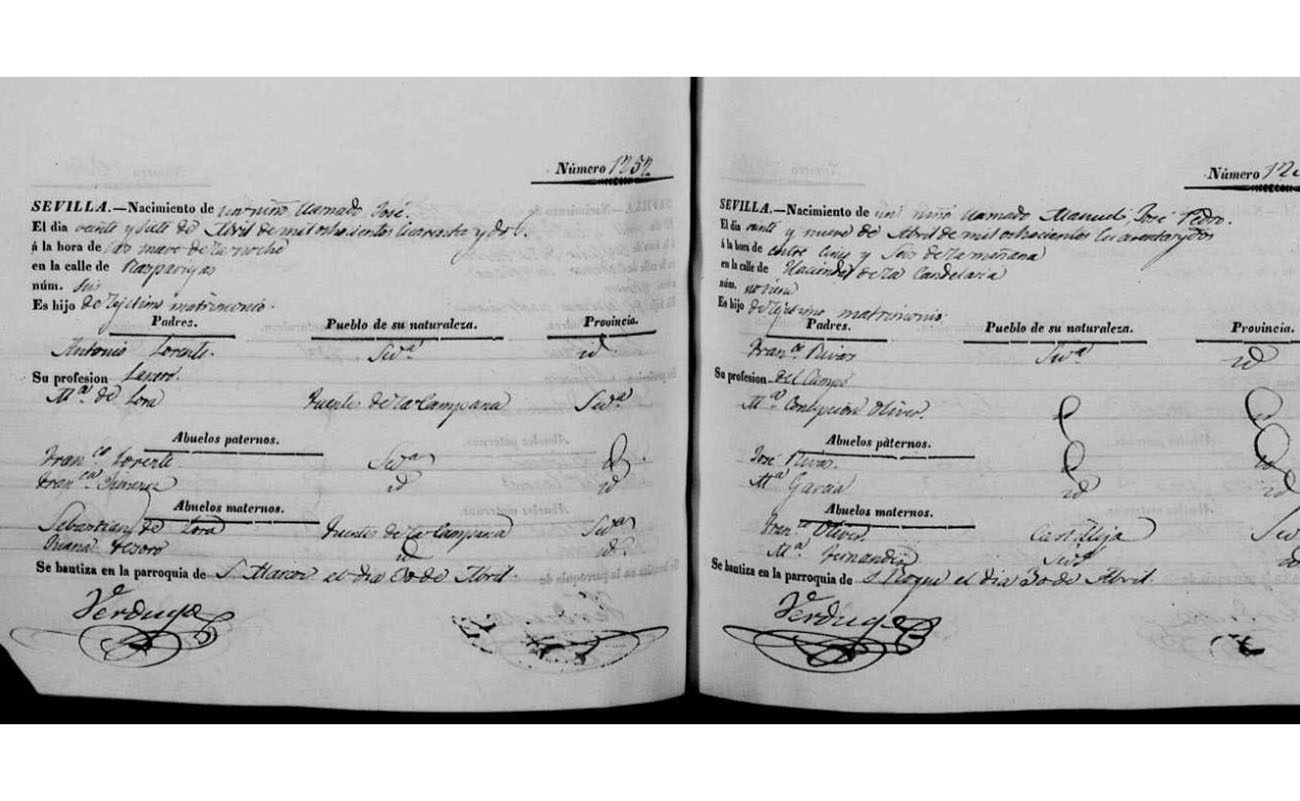 Número 1252
SEVILLA.—Nacimiento de un niño llamado José.
El dia veinte y siete de Abril de mil ochocientos cuarenta y dos.
á la hora de las nueve de la noche
en la calle de
núm. seis
Es hijo de lejitimo matrimonio.
Padres. Pueblo de su naturaleza. Provincia.
Antonio Lorente. Sevª id
Su profesion
Mª de Lora Fuentes de la Campana Sevª
Abuelos paternos.
Franco Lorente. Sevª
Franca id id
Abuelos maternos.
Sebastian de Lora Fuentes de la Campana Sevª
Juana Tesoro id id
Se bautiza en la parroquia de S. Marcos el dia 30 de Abril.
Verdugo
Número 12
SEVILLA.—Nacimiento de un niño llamado Manuel, José Pedro.
El dia veinte y nueve de Abril de mil ochocientos cuarenta y dos
á la hora de entre cinco y seis de la mañana
en la calle de Hacienda de la Candelaria
núm.
Es hijo de lejitimo matrimonio.
Padres. Pueblo de su naturaleza. Provincia.
Franco Rivas Sevª id
Su profesion del Campo
Mª Concepcion Oliver.
Abuelos paternos.
José Rivas.
Mª Garcia id id
Abuelos maternos.
Franco Oliver. Castilleja
Mª Fernandez Sevª
Se bautiza en la parroquia de S. Roque el dia 30 de Abril.
Verdugo